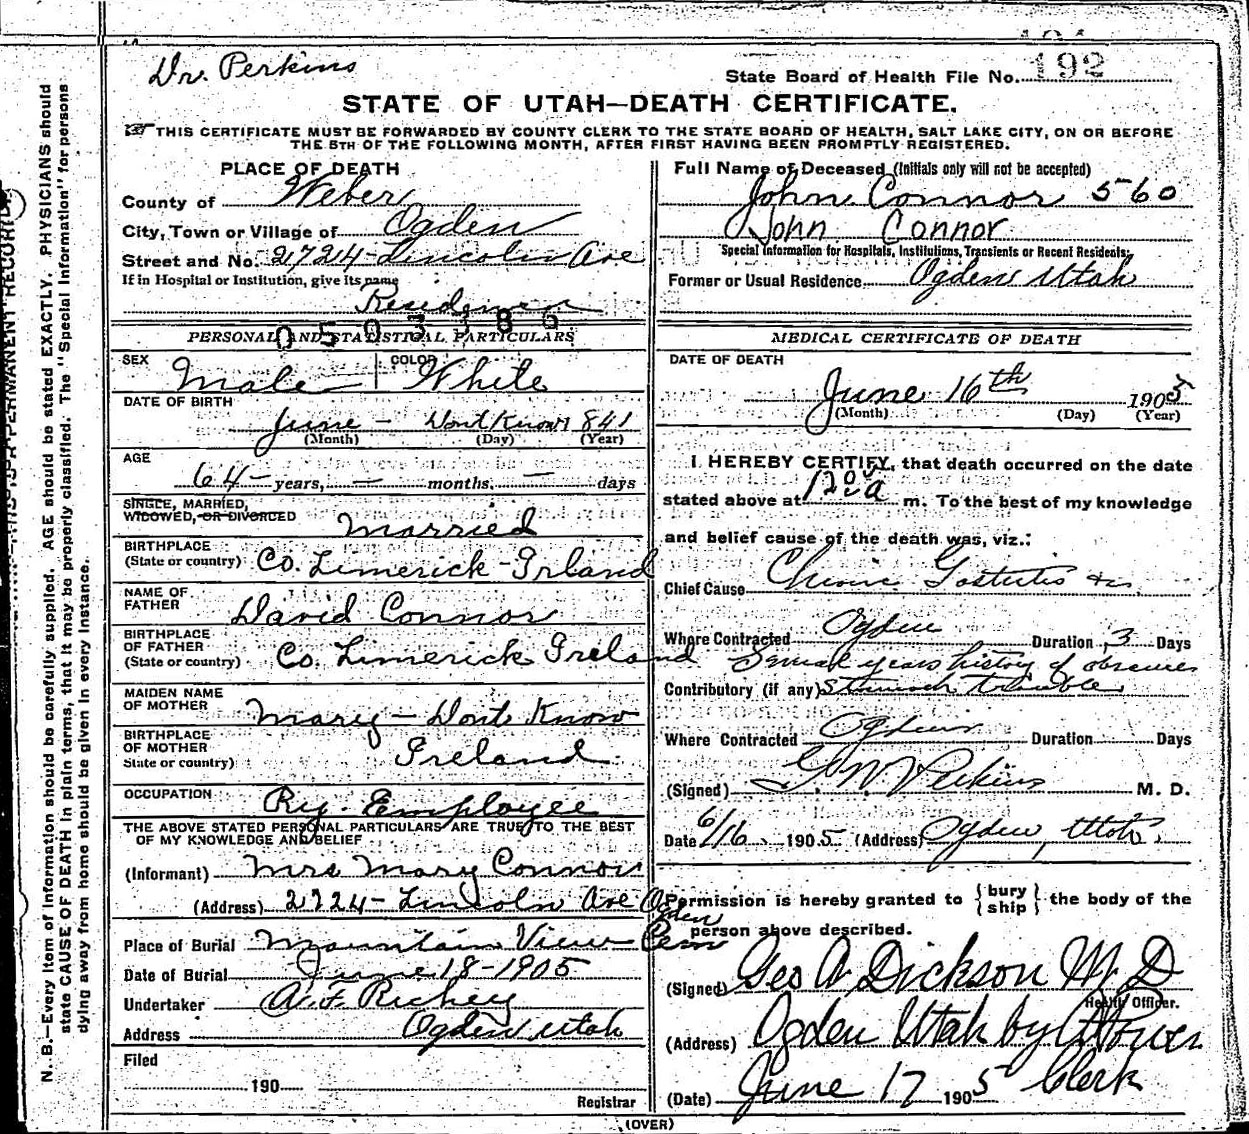 Dr. Perkins
State Board of Health File No. 192
STATE OF UTAH—DEATH CERTIFICATE.
THIS CERTIFICATE MUST BE FORWARDED BY COUNTY CLERK TO THE STATE BOARD OF HEALTH, SALT LAKE CITY, ON OR BEFORE
THE 5TH OF THE FOLLOWING MONTH, AFTER FIRST HAVING BEEN PROMPTLY REGISTERED.
N. B.—Every item of information should be carefully supplied. AGE should be stated EXACTLY. PHYSICIANS should
state CAUSE OF DEATH in plain terms, that it may be properly classified. The "Special Information" for persons
dying away from home should be given in every instance.
PERMANENT RECORD
PLACE OF DEATH
County of Weber
City, Town or Village of Ogden
Street and No. 2724 Lincoln Ave
If in Hospital or Institution, give its name
Residence
0503386
PERSONAL AND STATISTICAL PARTICULARS
SEX Male COLOR White
DATE OF BIRTH
June — Dont Know 1841
(Month) (Day) (Year)
AGE
64 years, — months, — days
SINGLE, MARRIED,
WIDOWED, OR DIVORCED Married
BIRTHPLACE
(State or country) Co. Limerick - Irland
NAME OF
FATHER David Connor
BIRTHPLACE
OF FATHER
(State or country) Co. Limerick Ireland
MAIDEN NAME
OF MOTHER Mary — Dont Know
BIRTHPLACE
OF MOTHER
State or country) Ireland
OCCUPATION Ry. Employee
THE ABOVE STATED PERSONAL PARTICULARS ARE TRUE TO THE BEST
OF MY KNOWLEDGE AND BELIEF
(Informant) Mrs Mary Connor
(Address) 2724 Lincoln Ave Ogden
Place of Burial Mountain View Cem
Date of Burial June 18 - 1905
Undertaker A. F. Richey
Address Ogden, Utah
Filed
190
Registrar
Full Name of Deceased (Initials only will not be accepted)
John Connor 560
John Connor
Special Information for Hospitals, Institutions, Transients or Recent Residents.
Former or Usual Residence Ogden Utah
MEDICAL CERTIFICATE OF DEATH
DATE OF DEATH
June 16th 1905
(Month) (Day) (Year)
I HEREBY CERTIFY, that death occurred on the date
stated above at 12 00 a m. To the best of my knowledge
and belief cause of the death was, viz.:
Chief Cause Chronic Gastritis &c
Where Contracted Ogden Duration 3 Days
Several years history of obscure
Contributory (if any) Stomach trouble
Where Contracted Ogden Duration Days
(Signed) Perkins M. D.
Date 6/16 1905 (Address) Ogden, Utah.
Permission is hereby granted to {bury ship} the body of the
person above described.
(Signed) Geo A Dickson M D
Health Officer.
(Address) Ogden Utah by
(Date) June 17 1905 Clerk
(OVER)